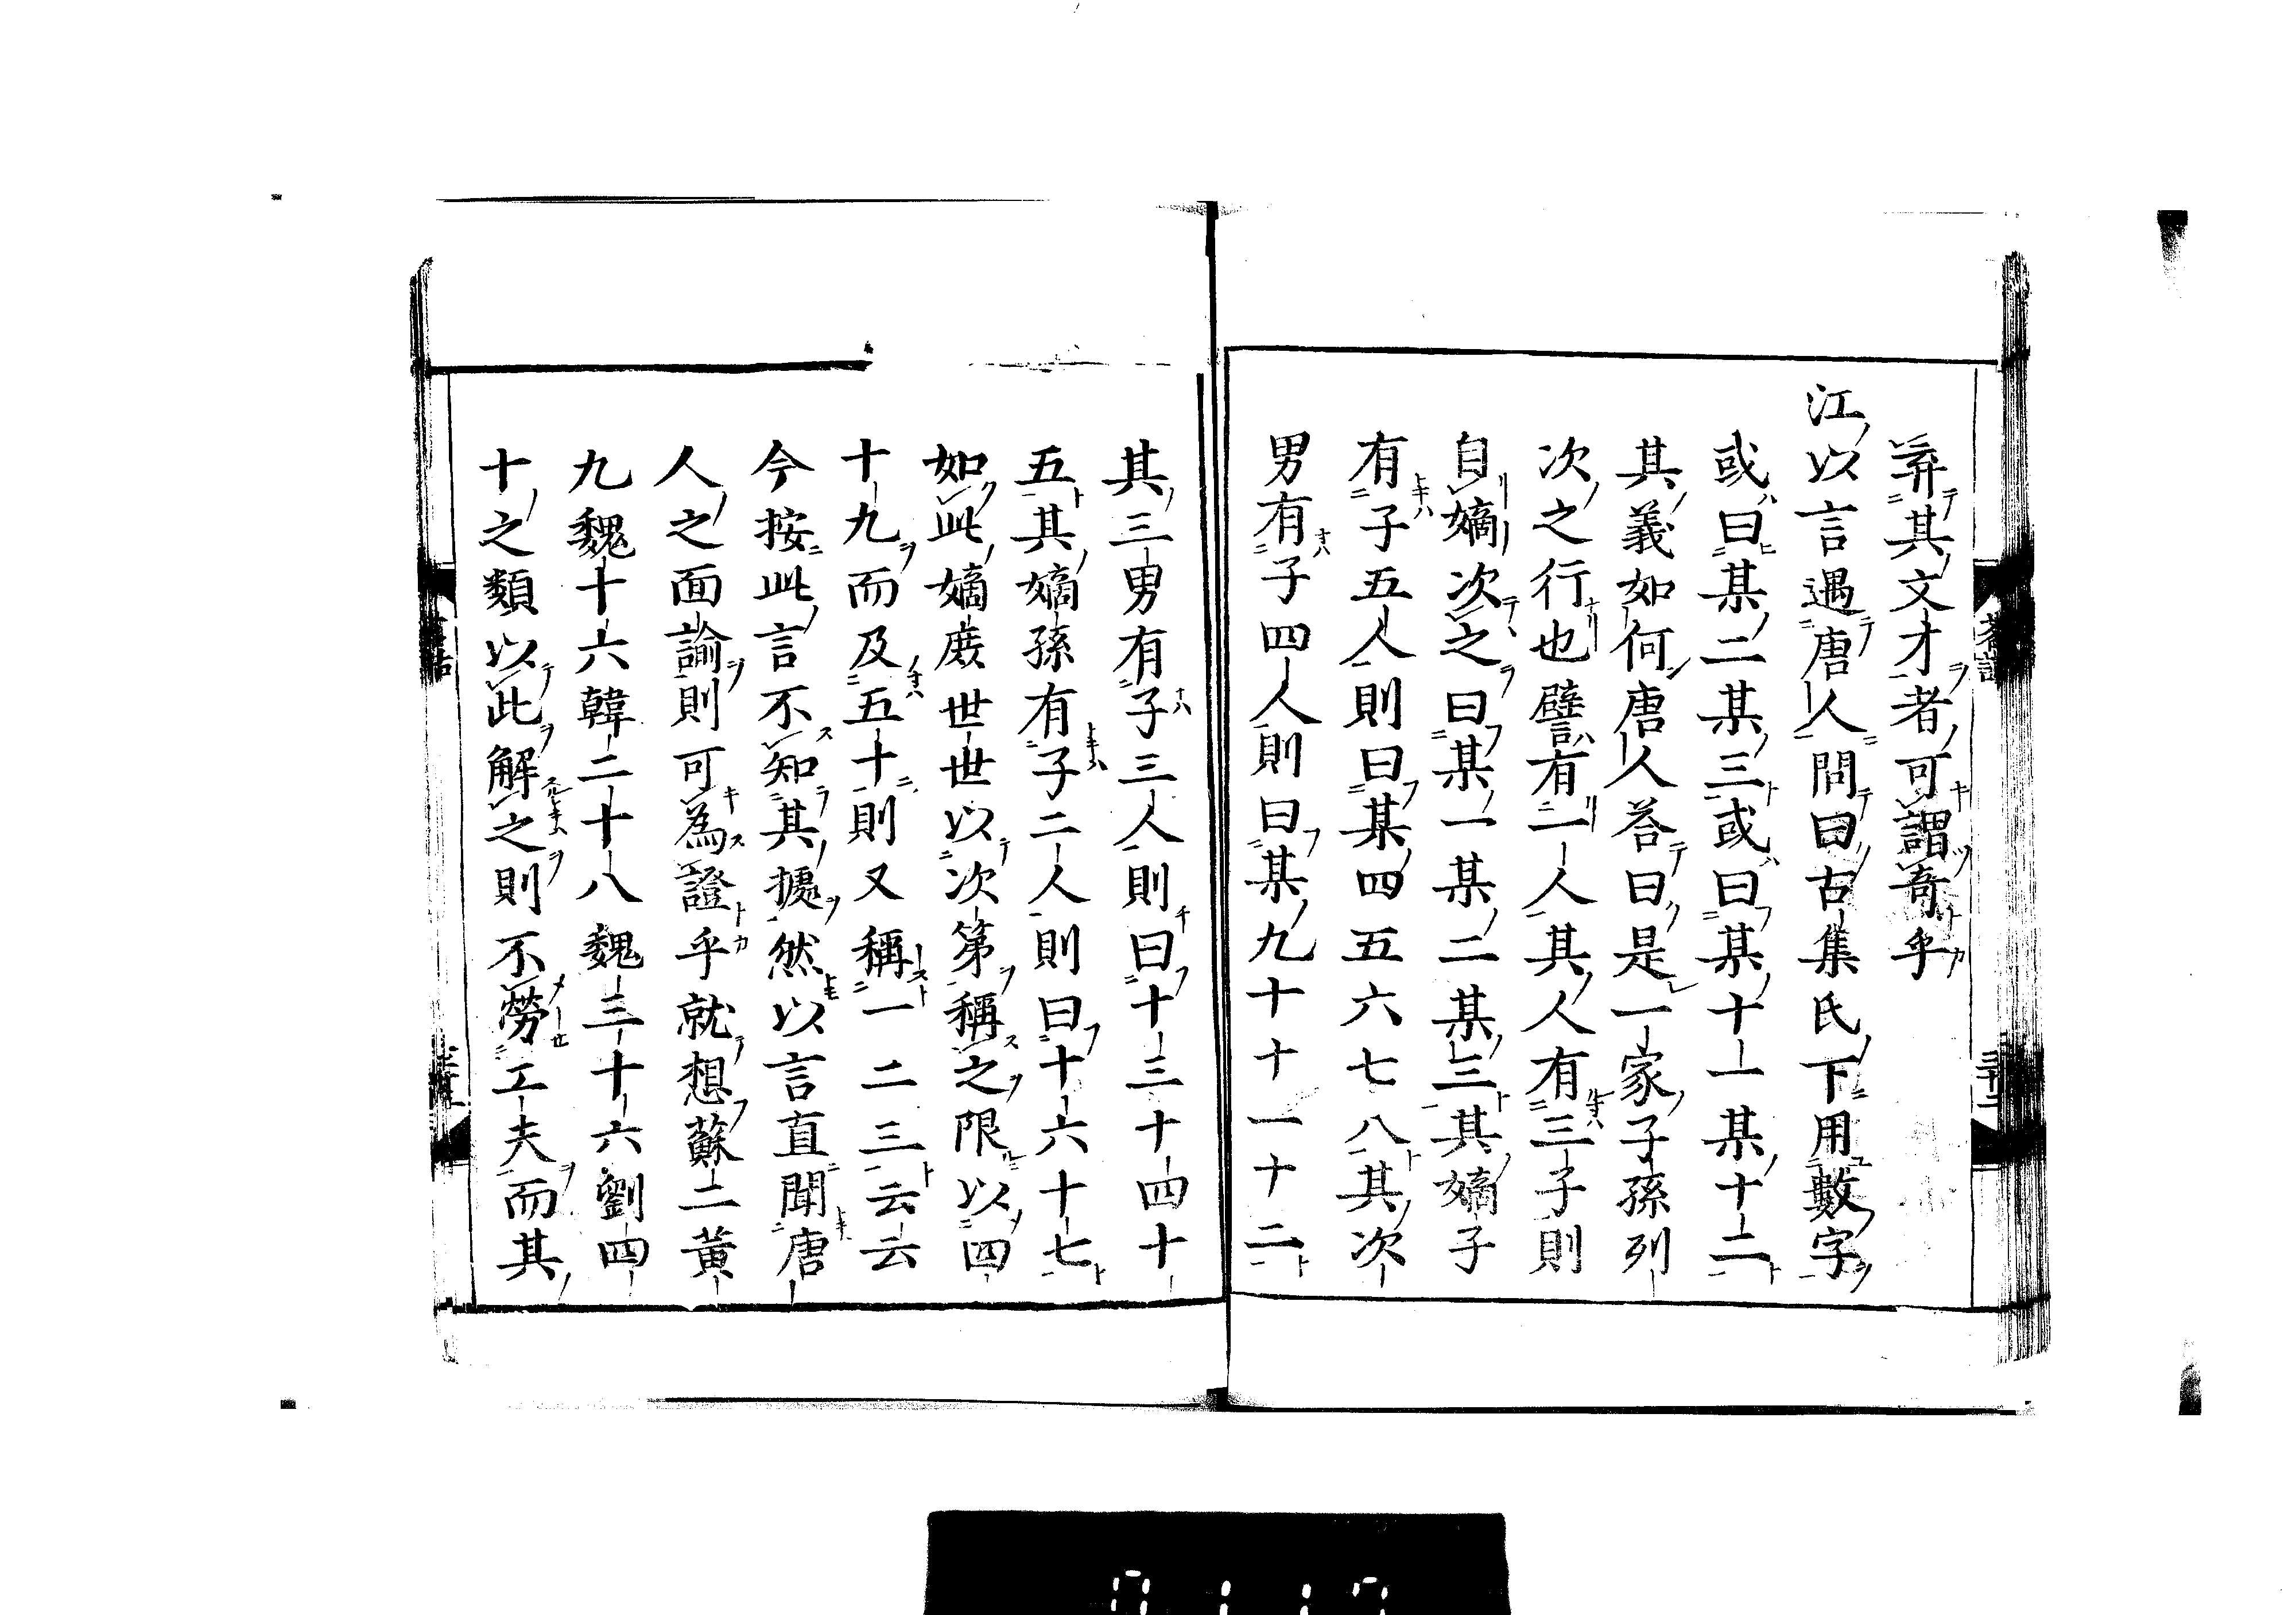 并其文才者可謂奇乎
江以言遇唐人問曰古集氏下用數字
或曰某二某三或曰某十一某十二
其義如何唐人答曰是一家子孫列
次之行也譬有一人其人有三子則
自嫡次之曰某一某二某三其嫡子
有子五人則曰某四五六七八其次
男有子四人則曰某九十十一十二
其三男有子三人則曰十三十四十
五其嫡孫有子二人則曰十六十七
如此嫡庶世世以次第稱之限以四
十九而及五十則又稱一二三云云
今按此言不知其據然以言直聞唐
人之面諭則可為證乎就想蘇二黃
九魏十六韓二十八魏三十六劉四
十之類以此解之則不勞工夫而其